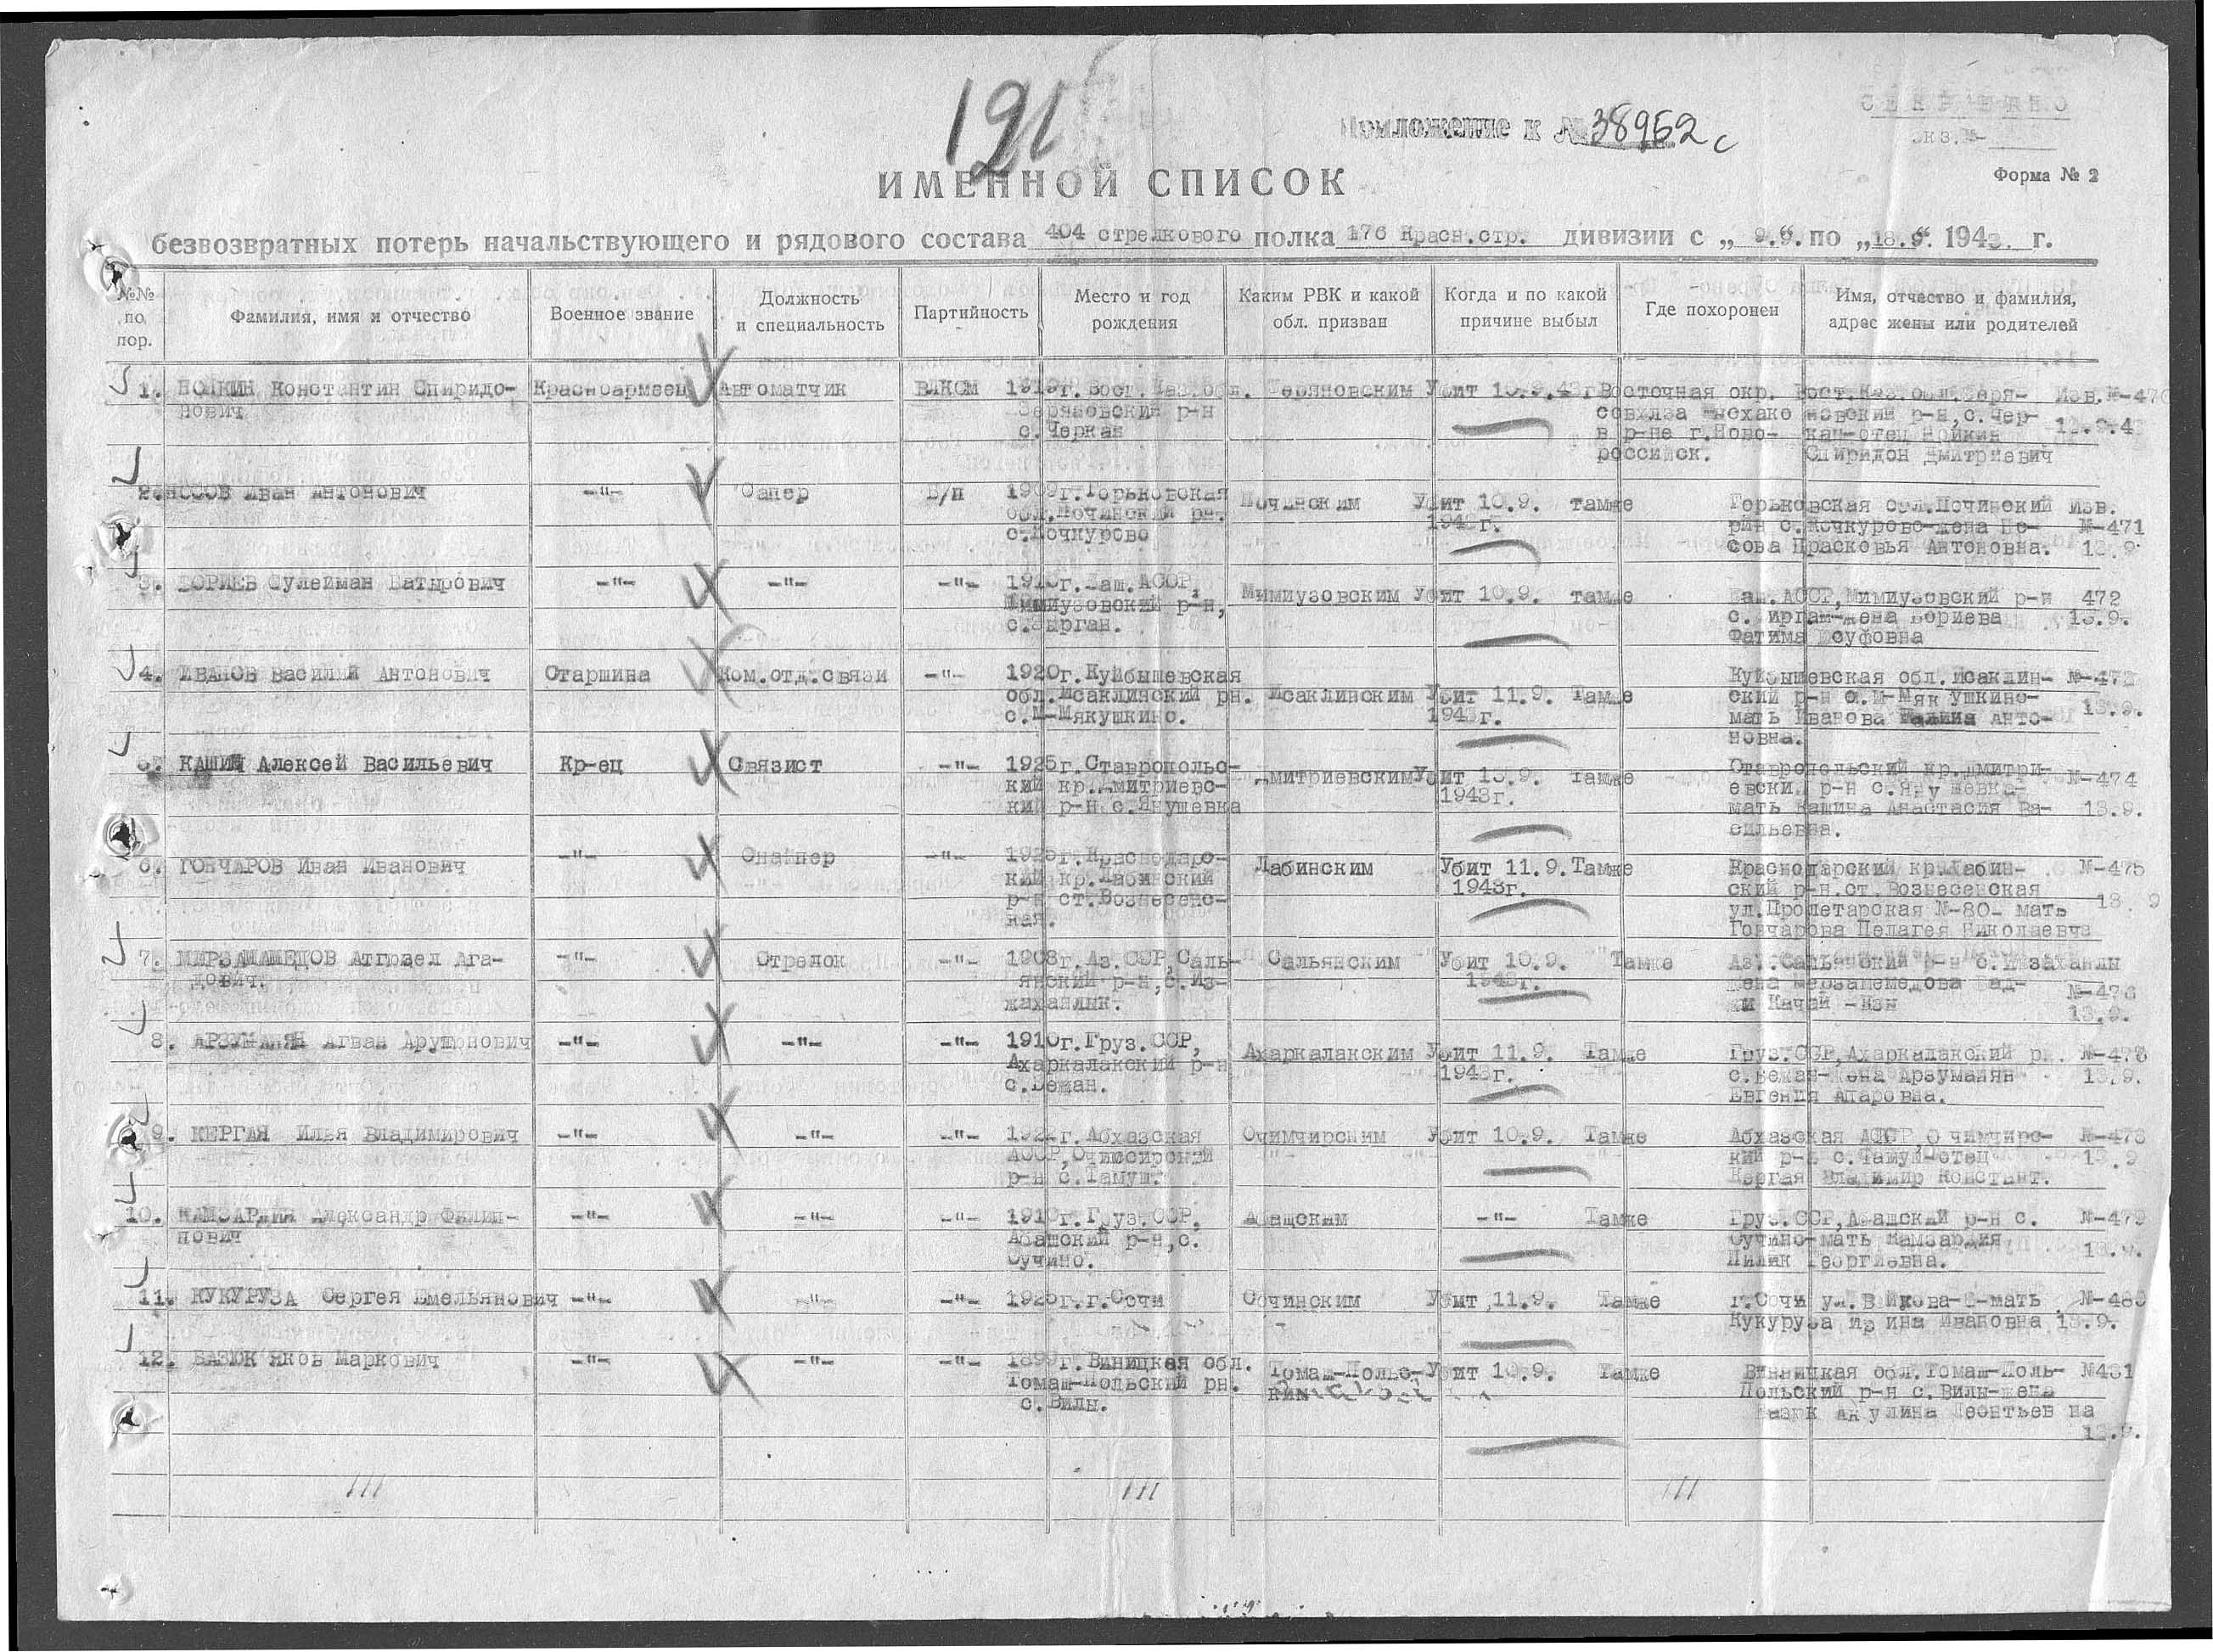 191
Приложение к № 38962с
СЕКРЕТНО
экз.№-
Форма № 2
ИМЕННОЙ СПИСОК
безвозвратных потерь начальствующего и рядового состава 404 стрелкового полка 176 Красн.стр. дивизии с „ 9.9. по „18.9. 1943. г.
№№ по пор.
Фамилия, имя и отчество
Военное звание
Должность и специальность
Партийность
Место и год рождения
Каким РВК и какой обл. призван
Когда и по какой причине выбыл
Где похоронен
Имя, отчество и фамилия, адрес жены или родителей
1. Константин Спиридо- Красноармеец Автоматчик ВЛКСМ 1919г. Вост. Каз.обл. Убит 10.9.43г Восточная окр. Вост.Каз.обл. Изв.№-470
нович р-н совхоза р-н, с. Чер-
с.Черкая в р-не г.Ново- отец
российск. Спиридон Дмитриевич
2. НОСОВ Иван Антонович -"- Сапер Б/п 1909г.Горьковская Починским Убит 10.9. тамже Горьковская обл.Починский Изв.
обл.Починский рн. 1943г. рн с.Кочкурово-жена Но- №-471
с.Кочкурово сова Прасковья Антоновна. 13.9.
3. БОРИЕВ Сулейман Батырович -"- -"- -"- Баш.АССР, Мимиузовским Убит 10.9. тамже Баш.АССР,Мимиузовский р-н 472
Мимиузовский р-н, жена Бориева 13.9.
Фатима Юсуфовна
4. ИВАНОВ Василий Антонович Старшина Ком.отд.связи -"- 1920г.Куйбышевская Исаклинским Убит 11.9. Тамже Куйбышевская обл.Исаклин-
обл.Исаклинский рн. 1943г. ский р-н с.М-Мякушкино- 13.9.
с.М-Мякушкино. мать Иванова Анто-
новна.
5. КАШИН Алексей Васильевич Кр-ец Связист -"- 1925г.Ставропольс- Дмитриевским Убит 13.9. Тамже Ставропольский кр.Дмитри- №-474
кий кр.Дмитриевс- 1943г. евский р-н с.Янушевка-
кий р-н с.Янушевка мать Кашина Анастасия Ва- 13.9.
сильевна.
6. ГОНЧАРОВ Иван Иванович -"- Снайпер -"- 1925г.Краснодарс- Лабинским Убит 11.9. Тамже Краснодарский кр.Лабин- №-475
кий кр.Лабинский 1943г. ский р-н.ст.Вознесенская
р-н ст.Вознесенс- ул.Пролетарская №-80- мать 13. 9
кая. Гончарова Пелагея Николаевна
7. Ага- -"- Стрелок -"- 1908г.Аз.ССР,Саль- Сальянским Убит 10.9. Тамже Аз. Сальянский р-н
дович. янский р-н,с.Из- 1943г. жена №-476
жахаплик. 13.9.
8. АРЗУМАНЯН Агван Арутюнович -"- -"- -"- 1910г.Груз.ССР, Ахаркалакским Убит 11.9. Тамже Груз.ССР,Ахаркалакский рн.
Ахаркалакский р-н 1943г. с.Бежан-жена Арзуманян 13.9.
с.Бежан. Евгения Апаровна.
9. КЕРГАЯ Илья Владимирович -"- -"- -"- Абхазская Очимчирским Убит 10.9. Тамже Абхазская АССР,Очимчирс- №-478
АССР, кий р-н с.Тамуш-отец 13.9
р-н с.Тамуш. Кергая Владимир Констант.
10. КАМЗАРДИЯ Александр Филип- -"- -"- -"- 1910г.Груз.ССР, Абашским -"- Тамже Груз.ССР,Абашский р-н с. №-479
пович Абашский р-н,с. Сучино-мать Камзардия 13.9.
Сучино. Георгиевна.
11. КУКУРУЗА Сергея Емельянович -"- -"- -"- 1925г.г.Сочи Сочинским Убит 11.9. Тамже г.Сочи мать №-480
Кукуруза Ирина Ивановна 13.9.
12. БАЗЮК Яков Маркович -"- -"- -"- 1899г.Виницкая обл. Томаш-Польс- Убит 10.9. Тамже Винницкая обл.Томаш-Поль- №481
Томаш-Польский рн. ким Польский р-н с.Вилы-жена
с.Вилы. Базюк Акулина Леонтьевна
13.9.